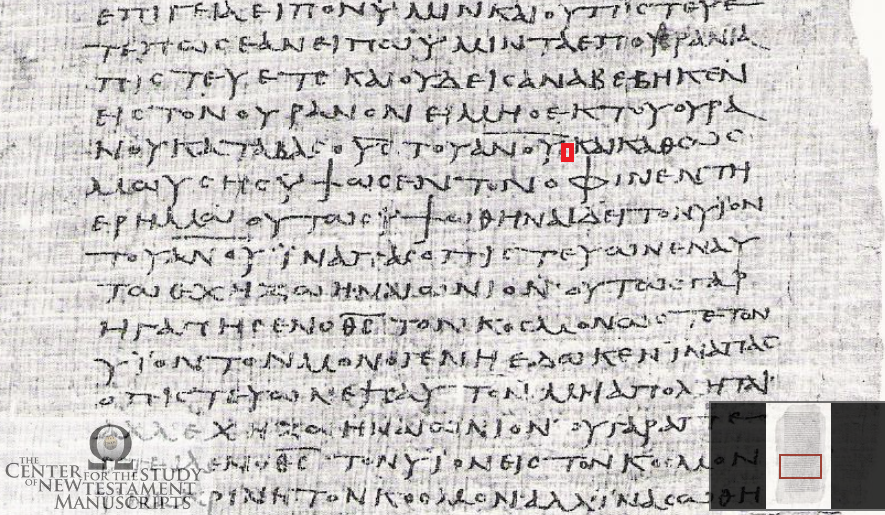 ΕΠΙΓΕΙΑΕΙΠΟΝΥΜΙΝΚΑΙΟΥΠΙϹΤΕΥΕ
ΤΕΠΩϹΕΑΝΕΙΠΩΥΜΙΝΤΑΕΠΟΥΡΑΝΙΑ
ΠΙϹΤΕΥΕΤΕΚΑΙΟΥΔΕΙϹΑΝΑΒΕΒΗΚΕΝ
ΕΙϹΤΟΝΟΥΡΑΝΟΝΕΙΜΗΟΕΚΤΟΥΟΥΡΑ
ΝΟΥΚΑΤΑΒΑϹΟΥϹΤΟΥΑ̅Ν̅Ο̅Υ̅ΚΑΙΚΑΘΩϹ
ΜΩΥϹΗϹΥΨΩϹΕΝΤΟΝΟΦΙΝΕΝΤΗ
ΕΡΗΜΩΟΥΤΩϹΥΨΩΘΗΝΑΙΔΕΙΤΟΝΥΙΟΝ
ΤΟΥΑ̅Ν̅Ο̅Υ̅ΪΝΑΠΑϹΟΠΙϹΤΕΥΩΝΕΝΑΥ
ΤΩΕΧΗΖΩΗΝΑΙΩΝΙΟΝ·ΟΥΤΩϹΓΑΡ
ΗΓΑΠΗϹΕΝΟΘ̅Ϲ̅ΤΟΝΚΟϹΜΟΝΩϹΤΕΤΟΝ
ΥΪΟΝΤΟΝΜΟΝΟΓΕΝΗΕΔΩΚΕΝΪΝΑΠΑϹ
ΟΠΙϹΤΕΥΩΝΕΙϹΑΥΤΟΝΜΗΑΠΟΛΗΤΑΙ
ΑΛΛΕΧΗΖΩΗΝΑΙΩΝΙΟΝ·ΟΥΓΑΡΑΠΕ
ΛΕΝΟΘ̅Ϲ̅ΤΟΝΥΙΟΝΕΙϹΤΟΝΚΟϹΜΟΝ
ΚΡΙΝΗΤΟΝΚΟϹΜΟΝΑΛΛΪΝΑϹΩΘΗ
THE CENTER FOR THE STUDY OF NEW TESTAMENT MANUSCRIPTS